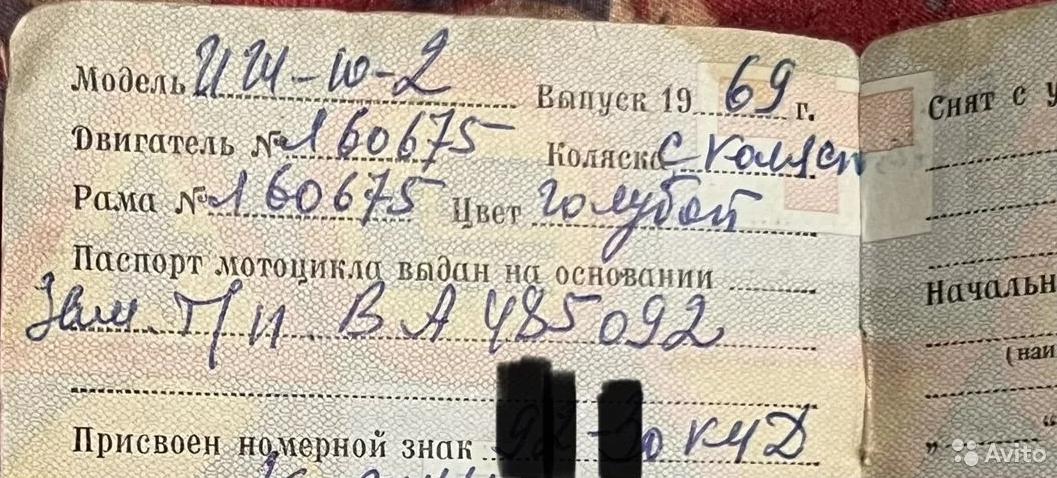 Модель ИЖ-Ю-2 Выпуск 1969 г.
Двигатель № 160675 Коляска С коляс
Рама № 160675 Цвет голубой
Паспорт мотоцикла выдан на основании
Зам. Т/п. ВА 485092
Присвоен номерной знак КМД
Снят с у
Начальн
(наи
„ “
Avito